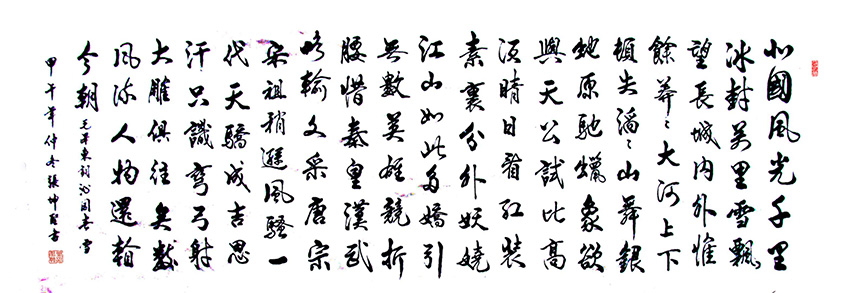 北國風光千里
冰封万里雪飄
望長城内外惟
餘莽〻大河上下
頓失滔〻山舞銀
蛇原馳蠟象欲
與天公試比高
須晴日看紅裝
素裹分外妖嬈
江山如此多嬌引
無數英雄競折
腰惜秦皇漢武
略輸文采唐宗
宋祖稍遜風騷一
代天驕成吉思
汗只識彎弓射
大雕俱往矣數
風流人物還看
今朝 毛澤東詞沁園春雪
甲午年仲冬張仲書